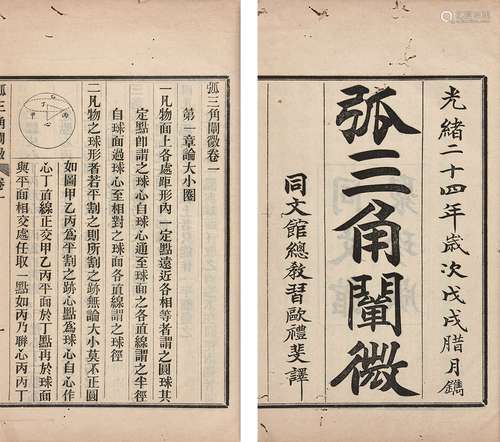 光緒二十四年歲次戊戌腊月鐫
弧三角闡微
同文館總教習歐禮斐譯
弧三角闡微卷一
第一章論大小圈
一凡物面上各處距形內一定點遠近各相等者謂之圓球其
定點卽謂之球心自球心通至球面之各直線謂之半徑
自球面過球心至相對之球面各直線謂之球徑
二凡物之球形者若平割之則所割之跡無論大小莫不正圓
如圖甲乙丙爲平割之跡心點爲球心自心作
心丁直線正交甲乙丙平面於丁點再於球面
與平面相交處任取一點如丙乃聯心丙丙丁
弧三角闡微
卷一
一